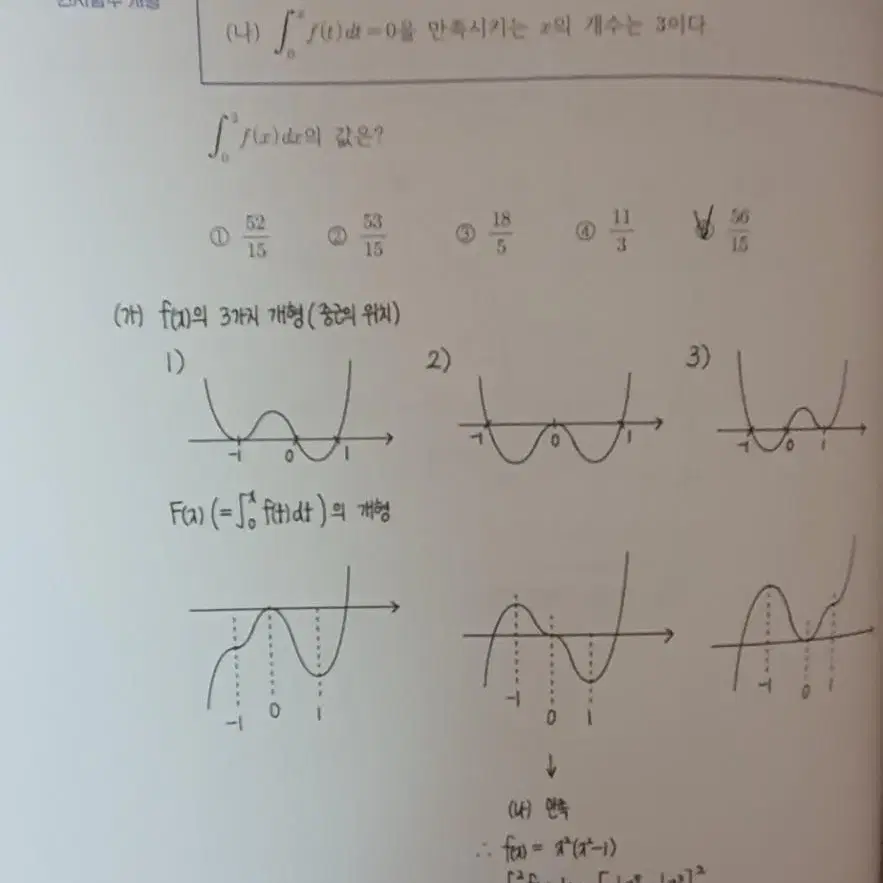 (나) ∫₀ˣ f(t)dt=0을 만족시키는 x의 개수는 3이다
f(x)dx의 값은?
① 52/15 ② 53/15 ③ 18/5 ④ 11/3 56/15
(가) f(x)의 3가지 개형(중근의 위치)
1) 2) 3)
-1 0 1 -1 0 1 -1 0 1
F(x)(=∫₀ˣ f(t)dt)의 개형
-1 0 1 -1 0 1 -1 0 1
↓
(나) 만족
∴ f(x) = x²(x²-1)